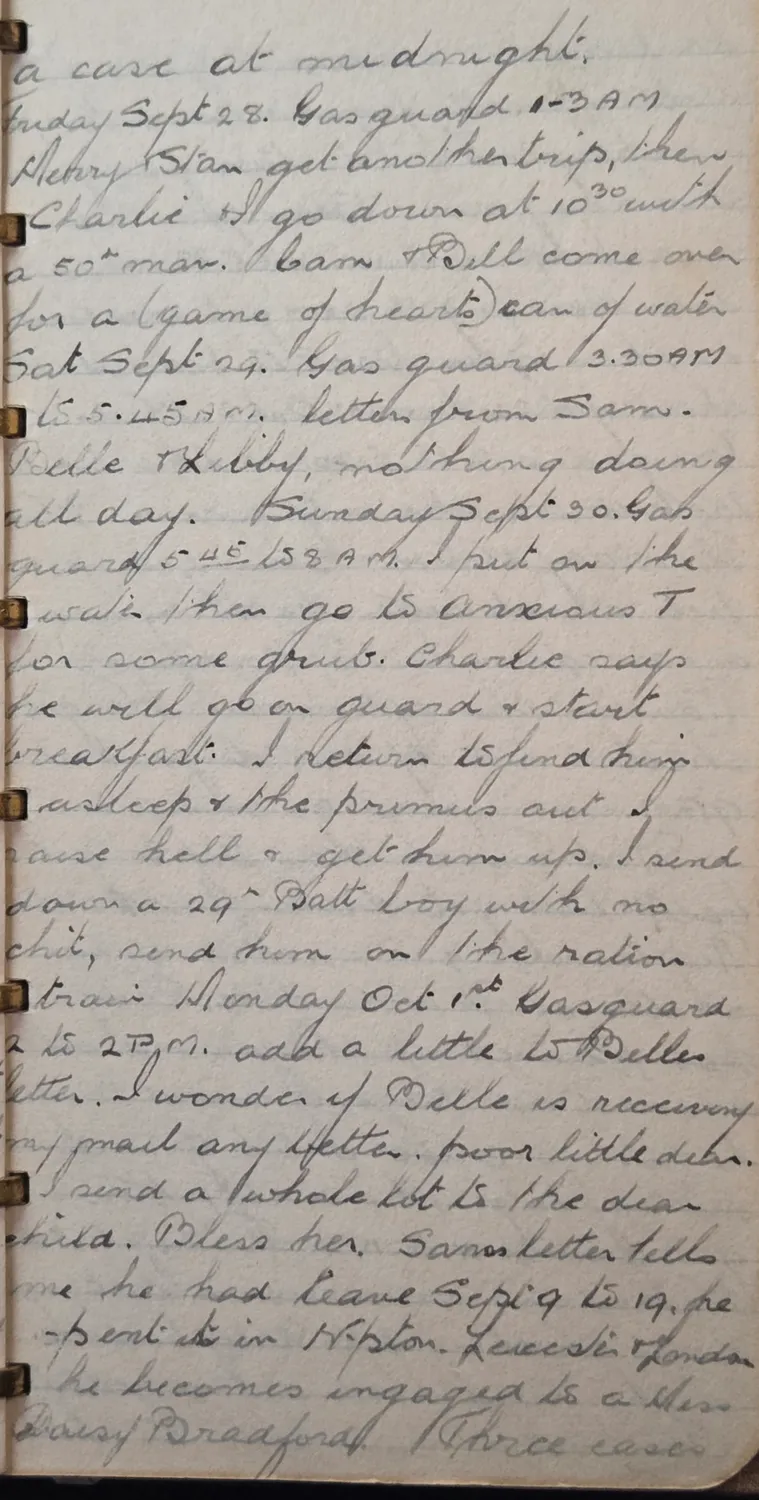 a case at midnight.
Friday Sept 28. Gas guard 1-3 AM
Henry Stan get another trip, then
Charlie & I go down at 10 30 with
a 50th man. Cam & Bill come over
for a (game of hearts) can of water
Sat Sept 29. Gas guard 3.30 AM
to 5.45 AM. letters from Sam.
Belle & Libby, nothing doing
all day. Sunday Sept 30. Gas
guard 5 45 to 8 AM. I put on the
water then go to Anxious T
for some grub. Charlie says
he will go on guard & start
breakfast. I return to find him
asleep & the primus out I
raise hell & get him up. I send
down a 29th Batt boy with no
chit, send him on the ration
train Monday Oct 1st. Gas guard
2 to 2 P.M. add a little to Belles
letter. I wonder if Belle is receiving
my mail any better. poor little dear.
I send a whole lot to the dear
child. Bless her. Sams letter tells
me he had leave Sept 9 to 19. he
-pent it in N-pton. Leicester & London
he becomes engaged to a Miss
Daisy Bradford. Three cases